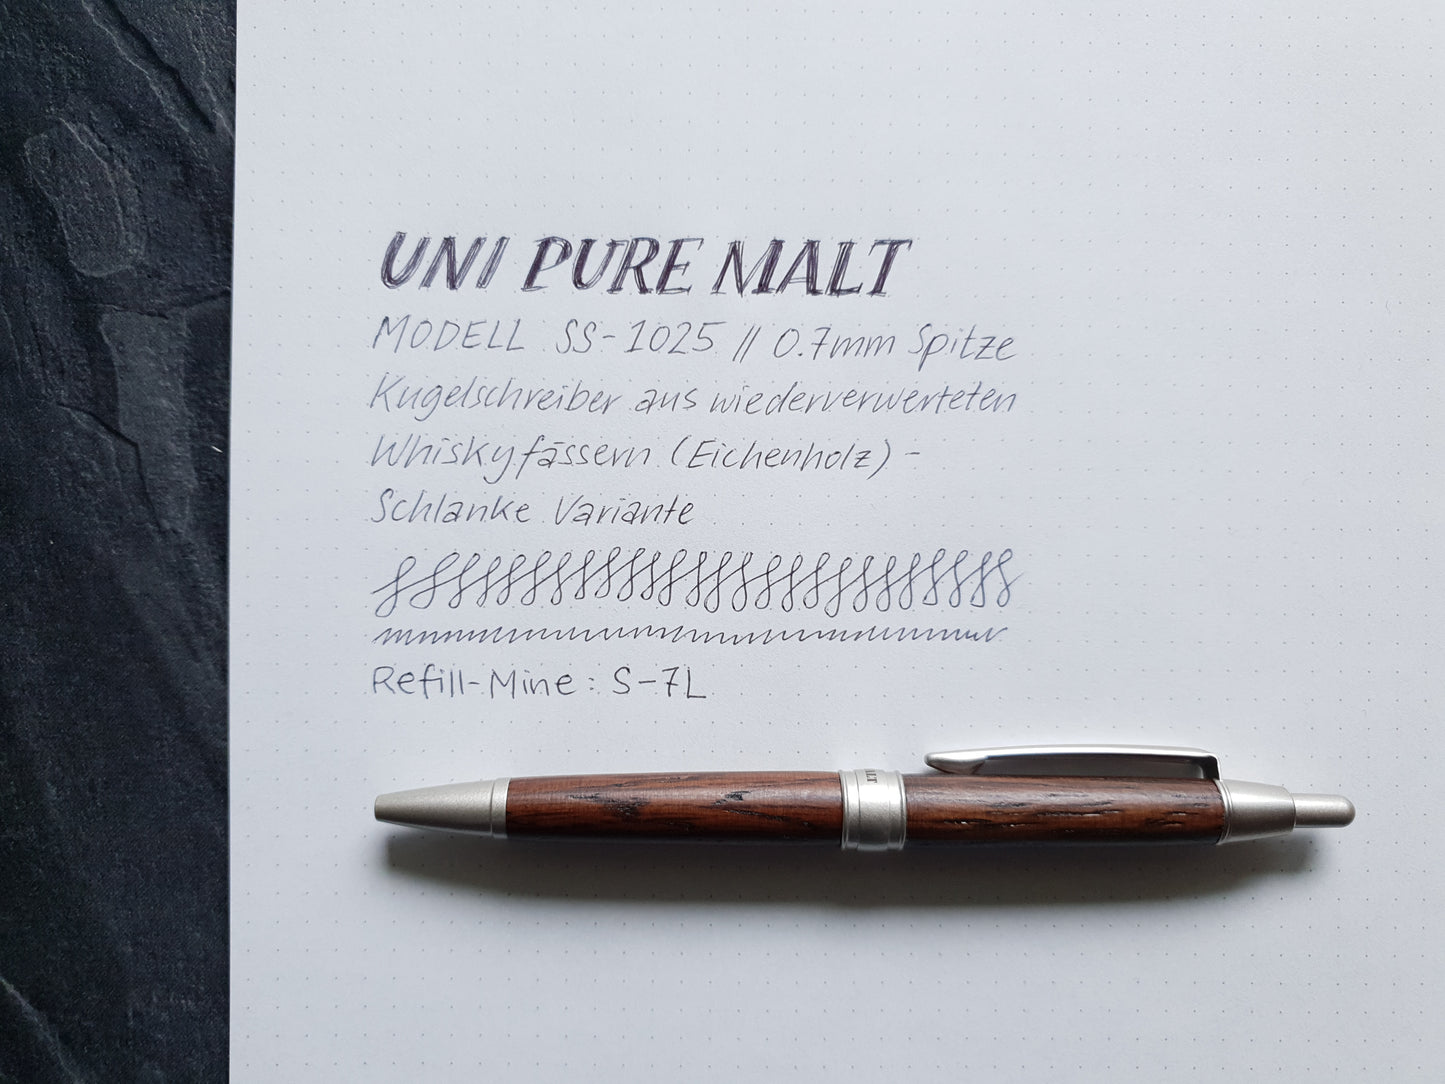 UNI PURE MALT
MODELL SS-1025 // 0.7mm Spitze
Kugelschreiber aus wiederverwerteten
Whiskyfässern (Eichenholz) -
Schlanke Variante
Refill-Mine: S-7L